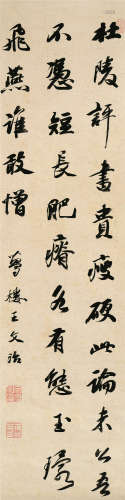 杜陵評書貴瘦硬此論未公吾
不憑短長肥瘠各有態玉環
飛燕誰敢憎
夢樓王文治